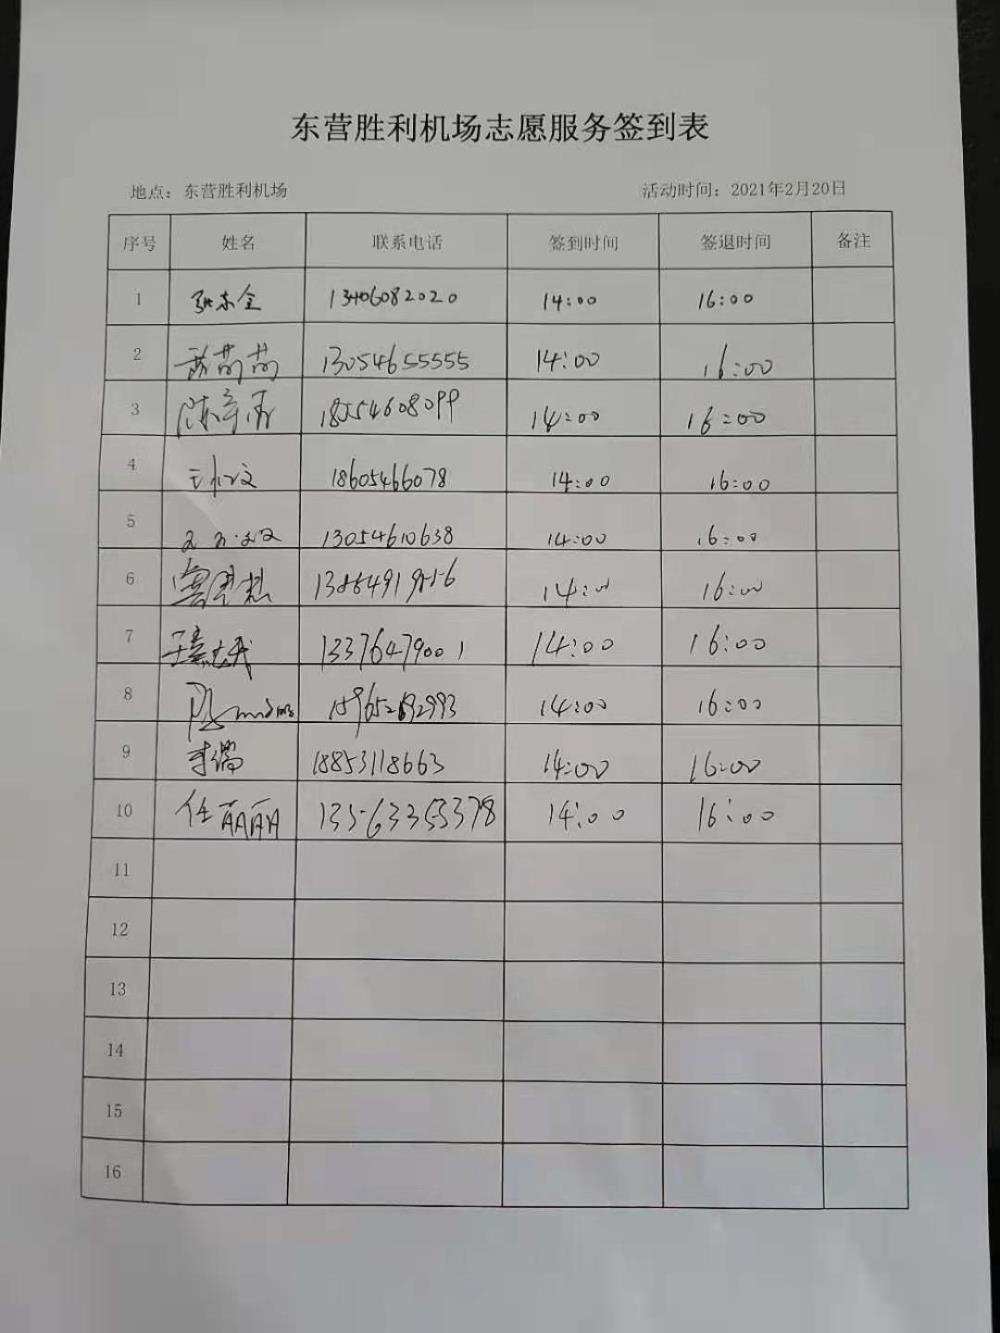 东营胜利机场志愿服务签到表
地点：东营胜利机场 活动时间：2021年2月20日
序号 姓名 联系电话 签到时间 签退时间 备注
1 张东全 13406082020 14:00 16:00
2 13054655555 14:00 16:00
3 18554608099 14:00 16:00
4 18605466078 14:00 16:00
5 13054610638 14:00 16:00
6 14:00 16:00
7 13376479001 14:00 16:00
8 14:00 16:00
9 李儒 18853118663 14:00 16:00
10 任丽丽 13563355378 14:00 16:00
11
12
13
14
15
16